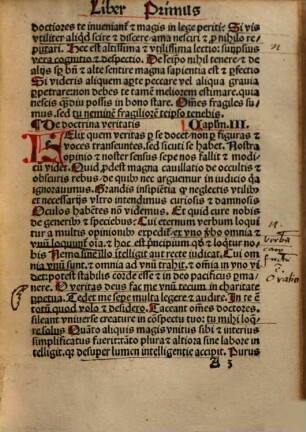 Liber Primus
doctiores te inueniant̃ ⁊ magis in lege periti: Si vis
vtiliter aliqd scire ⁊ discere ama nesciri ⁊ p nihilo re-
putari. Hec est altissima ⁊ vtilissima lectio: suipsius
vera cognitio ⁊ despectio. De seipso nihil tenere ⁊ de
alijs sp bn̄ ⁊ alte sentire magna sapientia est ⁊ pfectio
Si videris aliquem apte peccare vel aliqua grauia
ppetrare: non debes te tamē melioreȝ estimare, quia
nescis q̄diu possis in bono stare. Om̄es fragiles su-
mus, sed tu neminē fragiliorē teipso tenebis.
De doctrina veritatis Capłm. III.
Felix quem veritas p se docet non p figuras ⁊
voces transeuntes, sed sicuti se habet. Nostra
opinio ⁊ noster sensus sepe nos fallit ⁊ modi-
cū videt. Quid pdest magna cauillatio de occultis ⁊
obscuris rebus, de quib9 nec arguemur in iudicio qa
ignorauimus. Grandis insipiētia q̄ neglectis vtilib9
et necessarijs vltro intendimus curiosis ⁊ damnosis
Oculos habētes nō videmus. Et quid cure nobis
de generib9 ⁊ speciebus: Cui eternum verbum loqui
tur a multis opinionib9 expedit̃. ex vno xbo omnia ⁊
vnū loquunt̃ oīa, ⁊ hoc est pncipium qd ⁊ loqtur no-
bis Nemo sine illo itelligit aut recte iudicat. Cui om
nia vnū sunt, ⁊ omnia ad vnū trahit, ⁊ omnia in vno
videt: potest stabilis corde esse ⁊ in deo pacificus pma-
nere. O veritas deus fac me vnū tecum, in charitate
ppetua. Tedet me sepe multa legere ⁊ audire. In te ē
totū quod volo ⁊ desidero. Taceant omēs doctores.
sileant vniuerse creature in cōspectu tuo: tu mihi loq̄-
re solus Quāto aliquis magis vnitus sibi ⁊ interius
simplificatus fuerit: tāto plura ⁊ altiora sine labore in
telligit, qr desuper lumen intelligentie accipit. Purus
A 3